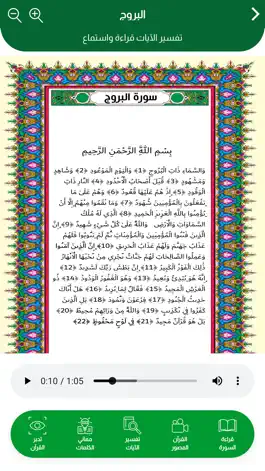 البروج
تفسير الآيات قراءة واستماع
سورة البروج
بِسْمِ اللَّهِ الرَّحْمَنِ الرَّحِيمِ
وَالسَّمَاءِ ذَاتِ الْبُرُوجِ ﴿1﴾ وَالْيَوْمِ الْمَوْعُودِ ﴿2﴾ وَشَاهِدٍ
وَمَشْهُودٍ ﴿3﴾ قُتِلَ أَصْحَابُ الْأُخْدُودِ ﴿4﴾ النَّارِ ذَاتِ
الْوَقُودِ ﴿5﴾ إِذْ هُمْ عَلَيْهَا قُعُودٌ ﴿6﴾ وَهُمْ عَلَى مَا
يَفْعَلُونَ بِالْمُؤْمِنِينَ شُهُودٌ ﴿7﴾ وَمَا نَقَمُوا مِنْهُمْ إِلَّا أَنْ
يُؤْمِنُوا بِاللَّهِ الْعَزِيزِ الْحَمِيدِ ﴿8﴾ الَّذِي لَهُ مُلْكُ
السَّمَاوَاتِ وَالْأَرْضِ وَاللَّهُ عَلَى كُلِّ شَيْءٍ شَهِيدٌ ﴿9﴾ إِنَّ
الَّذِينَ فَتَنُوا الْمُؤْمِنِينَ وَالْمُؤْمِنَاتِ ثُمَّ لَمْ يَتُوبُوا فَلَهُمْ
عَذَابُ جَهَنَّمَ وَلَهُمْ عَذَابُ الْحَرِيقِ ﴿10﴾ إِنَّ الَّذِينَ آمَنُوا
وَعَمِلُوا الصَّالِحَاتِ لَهُمْ جَنَّاتٌ تَجْرِي مِنْ تَحْتِهَا الْأَنْهَارُ
ذَلِكَ الْفَوْزُ الْكَبِيرُ ﴿11﴾ إِنَّ بَطْشَ رَبِّكَ لَشَدِيدٌ ﴿12﴾
إِنَّهُ هُوَ يُبْدِئُ وَيُعِيدُ ﴿13﴾ وَهُوَ الْغَفُورُ الْوَدُودُ ﴿14﴾ ذُو
الْعَرْشِ الْمَجِيدُ ﴿15﴾ فَعَّالٌ لِمَا يُرِيدُ ﴿16﴾ هَلْ أَتَاكَ
حَدِيثُ الْجُنُودِ ﴿17﴾ فِرْعَوْنَ وَثَمُودَ ﴿18﴾ بَلِ الَّذِينَ
كَفَرُوا فِي تَكْذِيبٍ ﴿19﴾ وَاللَّهُ مِنْ وَرَائِهِمْ مُحِيطٌ ﴿20﴾
بَلْ هُوَ قُرْآنٌ مَجِيدٌ ﴿21﴾ فِي لَوْحٍ مَحْفُوظٍ ﴿22﴾
0:10 / 1:05
قراءة السورة
القرآن المصور
تفسير الآيات
معاني الكلمات
تدبر القرآن